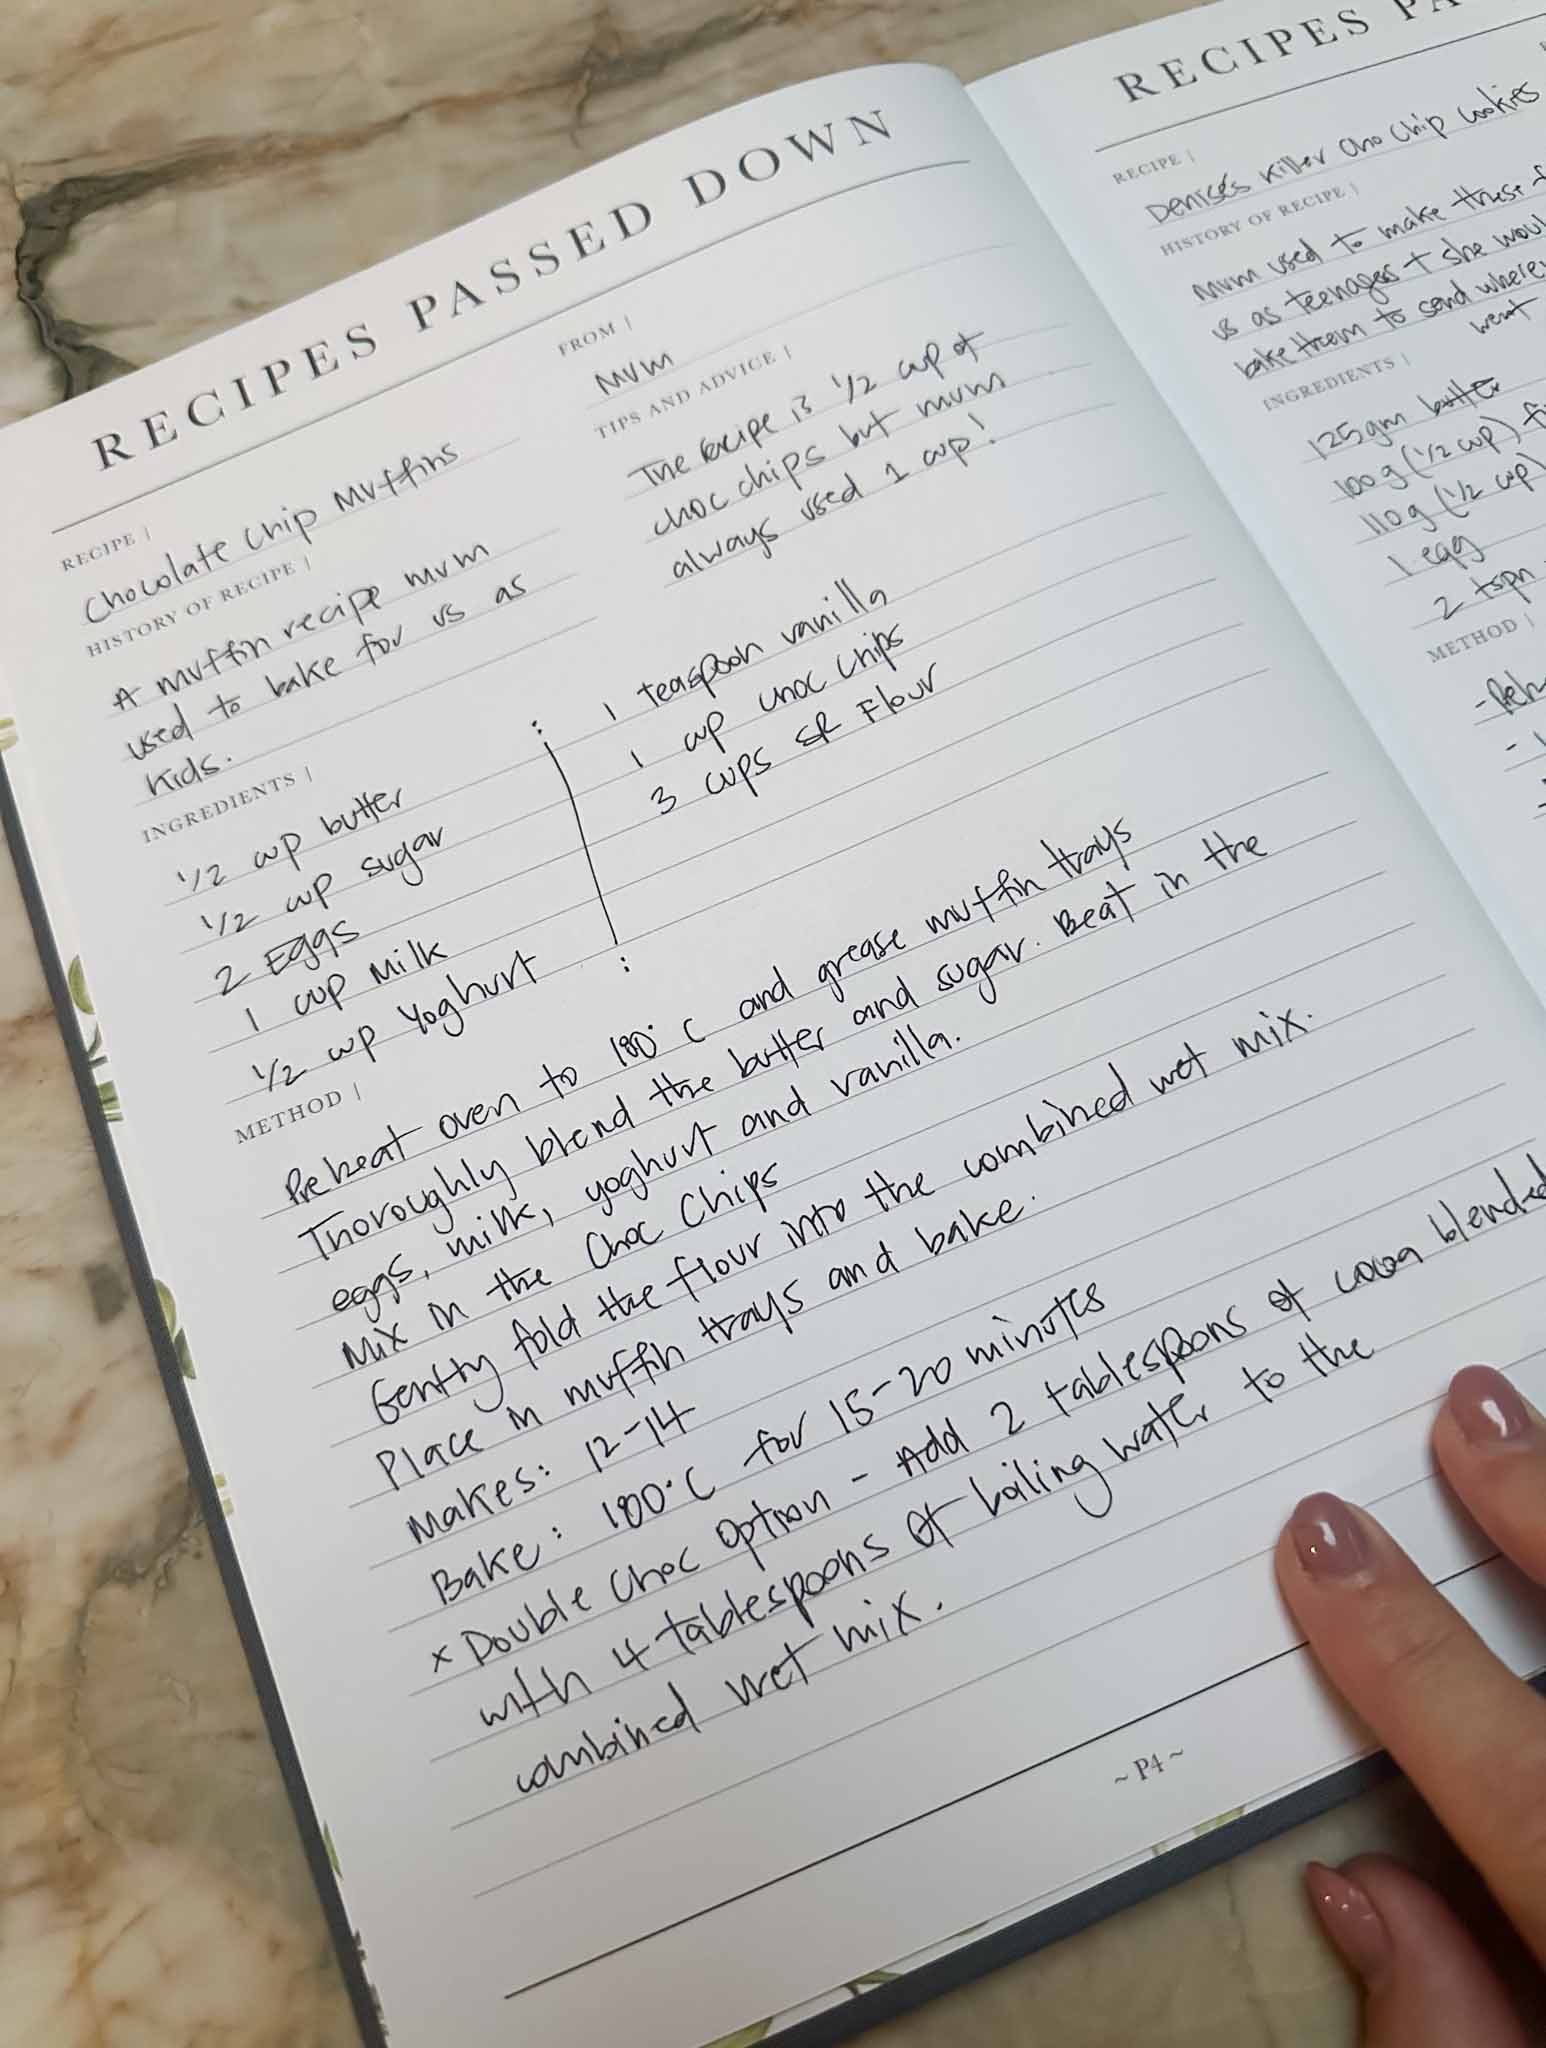 RECIPES PASSED DOWN
RECIPE |
Chocolate Chip Muffins
HISTORY OF RECIPE |
A muffin recipe mum
used to bake for us as
kids.
FROM |
Mum
TIPS AND ADVICE |
The recipe is 1/2 cup of
choc chips but mum
always used 1 cup!
INGREDIENTS |
1/2 cup butter
1/2 cup sugar
2 Eggs
1 cup Milk
1/2 cup Yoghurt
1 teaspoon vanilla
1 cup choc chips
3 cups SR Flour
METHOD |
Preheat oven to 180°C and grease muffin trays
Thoroughly blend the butter and sugar. Beat in the
eggs, milk, yoghurt and vanilla.
Mix in the Choc Chips
Gently fold the flour into the combined wet mix.
Place in muffin trays and bake.
Makes: 12-14
Bake: 180°C for 15-20 minutes
x Double Choc Option - Add 2 tablespoons of cocoa blended
with 4 tablespoons of boiling water to the
combined wet mix.
~ P4 ~
RECIPES
RECIPE |
Denise's Killer Cho Chip Cookies
HISTORY OF RECIPE |
Mum used to make these
us as teenages + she
bake them to send
went
INGREDIENTS |
125gm butter
100g (1/2 cup)
110g (1/2 cup)
1 egg
2 tspn
METHOD |